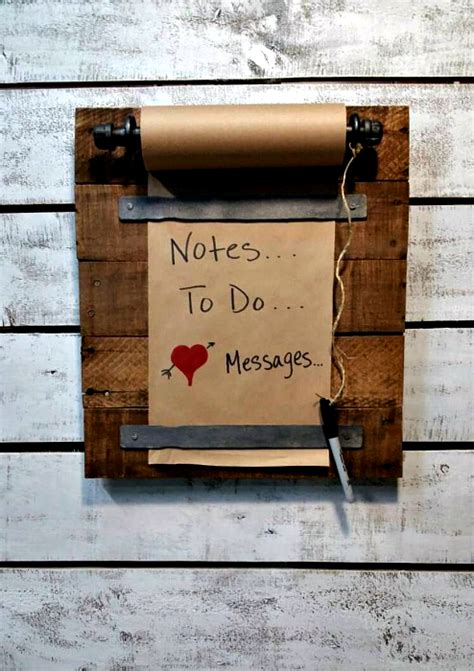 Notes...
To Do...
Messages...